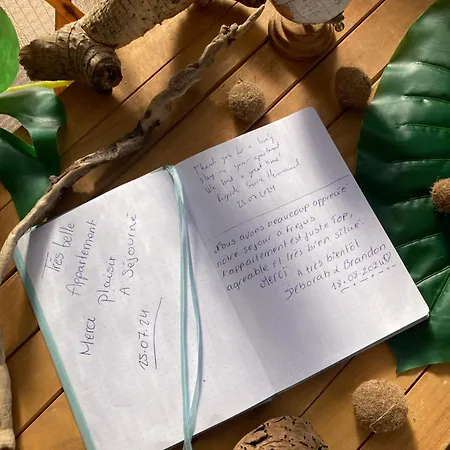 Très belle
Appartement
Merci plaisir
A Séjourné
25.07.24
Thank you for a lovely
stay in your apartment
We had a great time!
Regards
25.07.2024
Nous avons beaucoup apprécié
notre séjour à Fréjus
l'appartement est juste Top,
agréable et très bien situé.
Merci A très bientôt
Deborah & Grandon
18.08.2024